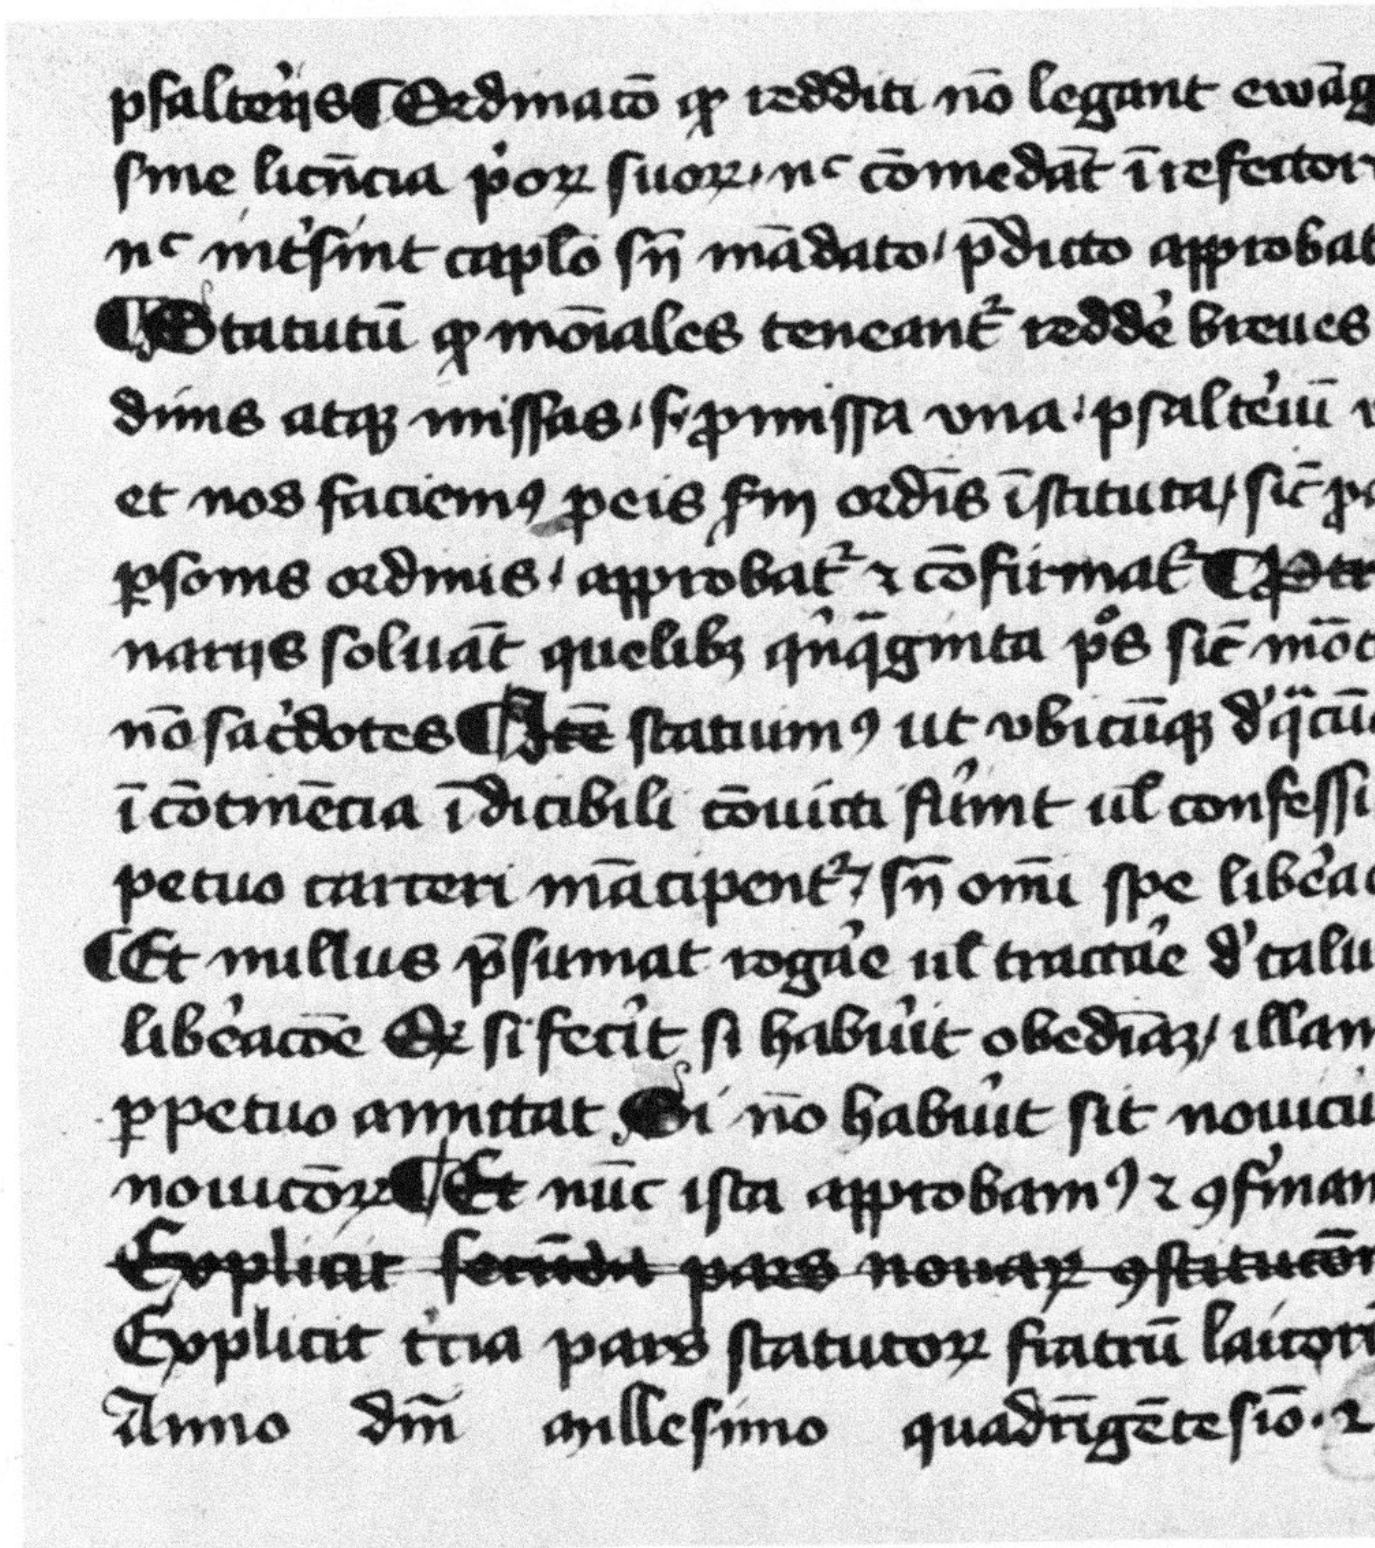 psalterijs ¶ Ordinatō qꝫ redditi nō legant ewāg
sine licn̄cia p'orꝝ suorꝝ / nᶜ cōmedāt ī refector
nᶜ int'sint caplo sn̄ mādato / p̄dicto approbat
¶ Statutū qꝫ mōiales teneant᷑ redde' breues
dinis atqꝫ missas / s· ꝓ missa vna / psalte'iū
et nos faciemꝰ ꝑ eis scd'm ordīs īstituta / sic̄
ꝑsonis ordinis / approbat᷑ ⁊ cōfirmat᷑ ¶
narijs soluāt quelibꝫ qu'nqᵃginta pᵒs sic̄ mōc
nō sac'dotes ¶ Itē statuimꝰ ut vbicūqꝫ d' qᵃcūc
ī cōtinēcia īdicibili cōuicti fu'int ul̄ confessi
petuo carceri mācipent᷑ / sn̄ om̄i spe libe'ac
¶ Et nullus p̄sumat roga'e ul̄ tracta'e d' taliu
libe'acōe Qꝫ si fec'it si habu'it obediāꝫ / illam
ꝑpetuo amittat Si nō habu'it sit nouiciu
nouicōrꝝ ¶ Et nūc ista approbamꝰ ⁊ ꝯf'mam
Explicit secūda pars nouaꝝ ꝯstitucōn
Explicit t'cia pars statutorꝝ fratrū laicori
Anno dn̄i millesimo quadrīgētesīo · ⁊